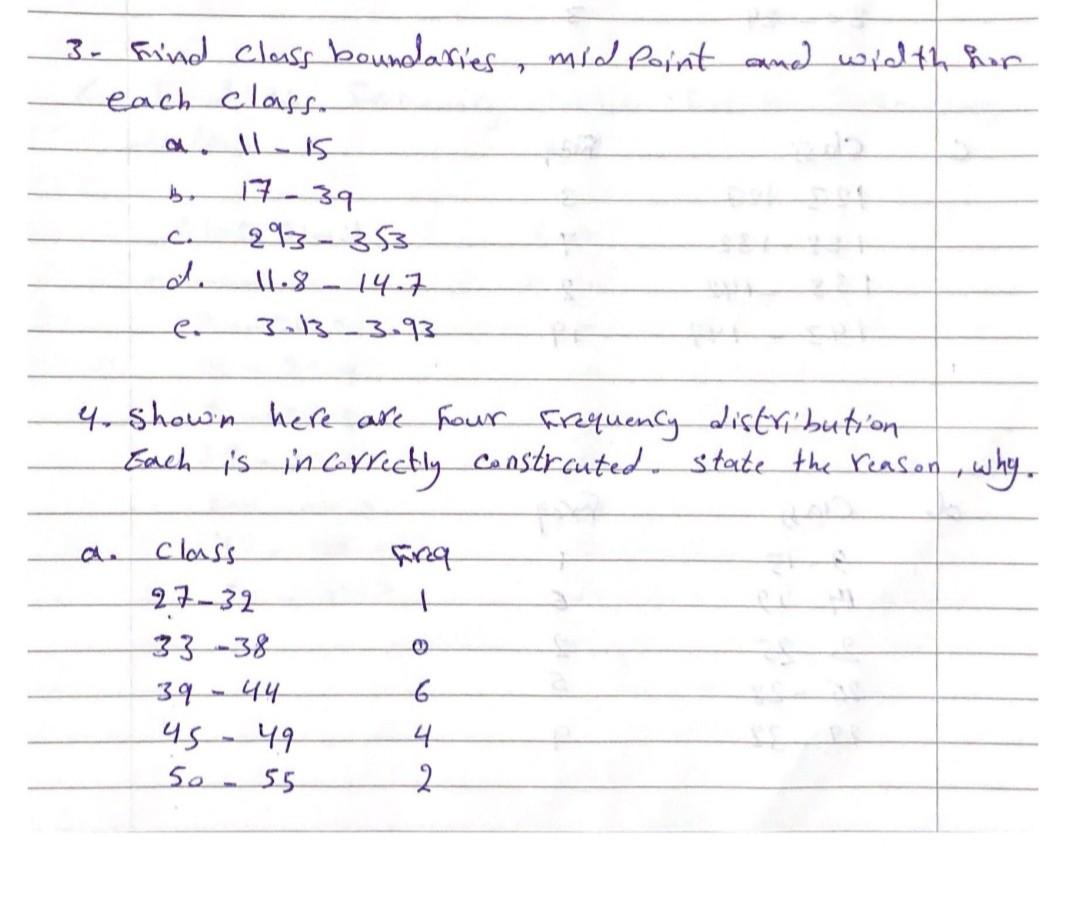 3- Find class boundaries, mid Point and width for
each class.
a. 11 - 15
b. 17 - 39
c. 293 - 353
d. 11.8 - 14.7
e. 3.13 - 3.93
4. Shown here are Four Frequency distribution
Each is incorrectly constrcuted. State the reason, why.
a. Class Freq
27-32 1
33-38 0
39 - 44 6
45 - 49 4
50 - 55 2